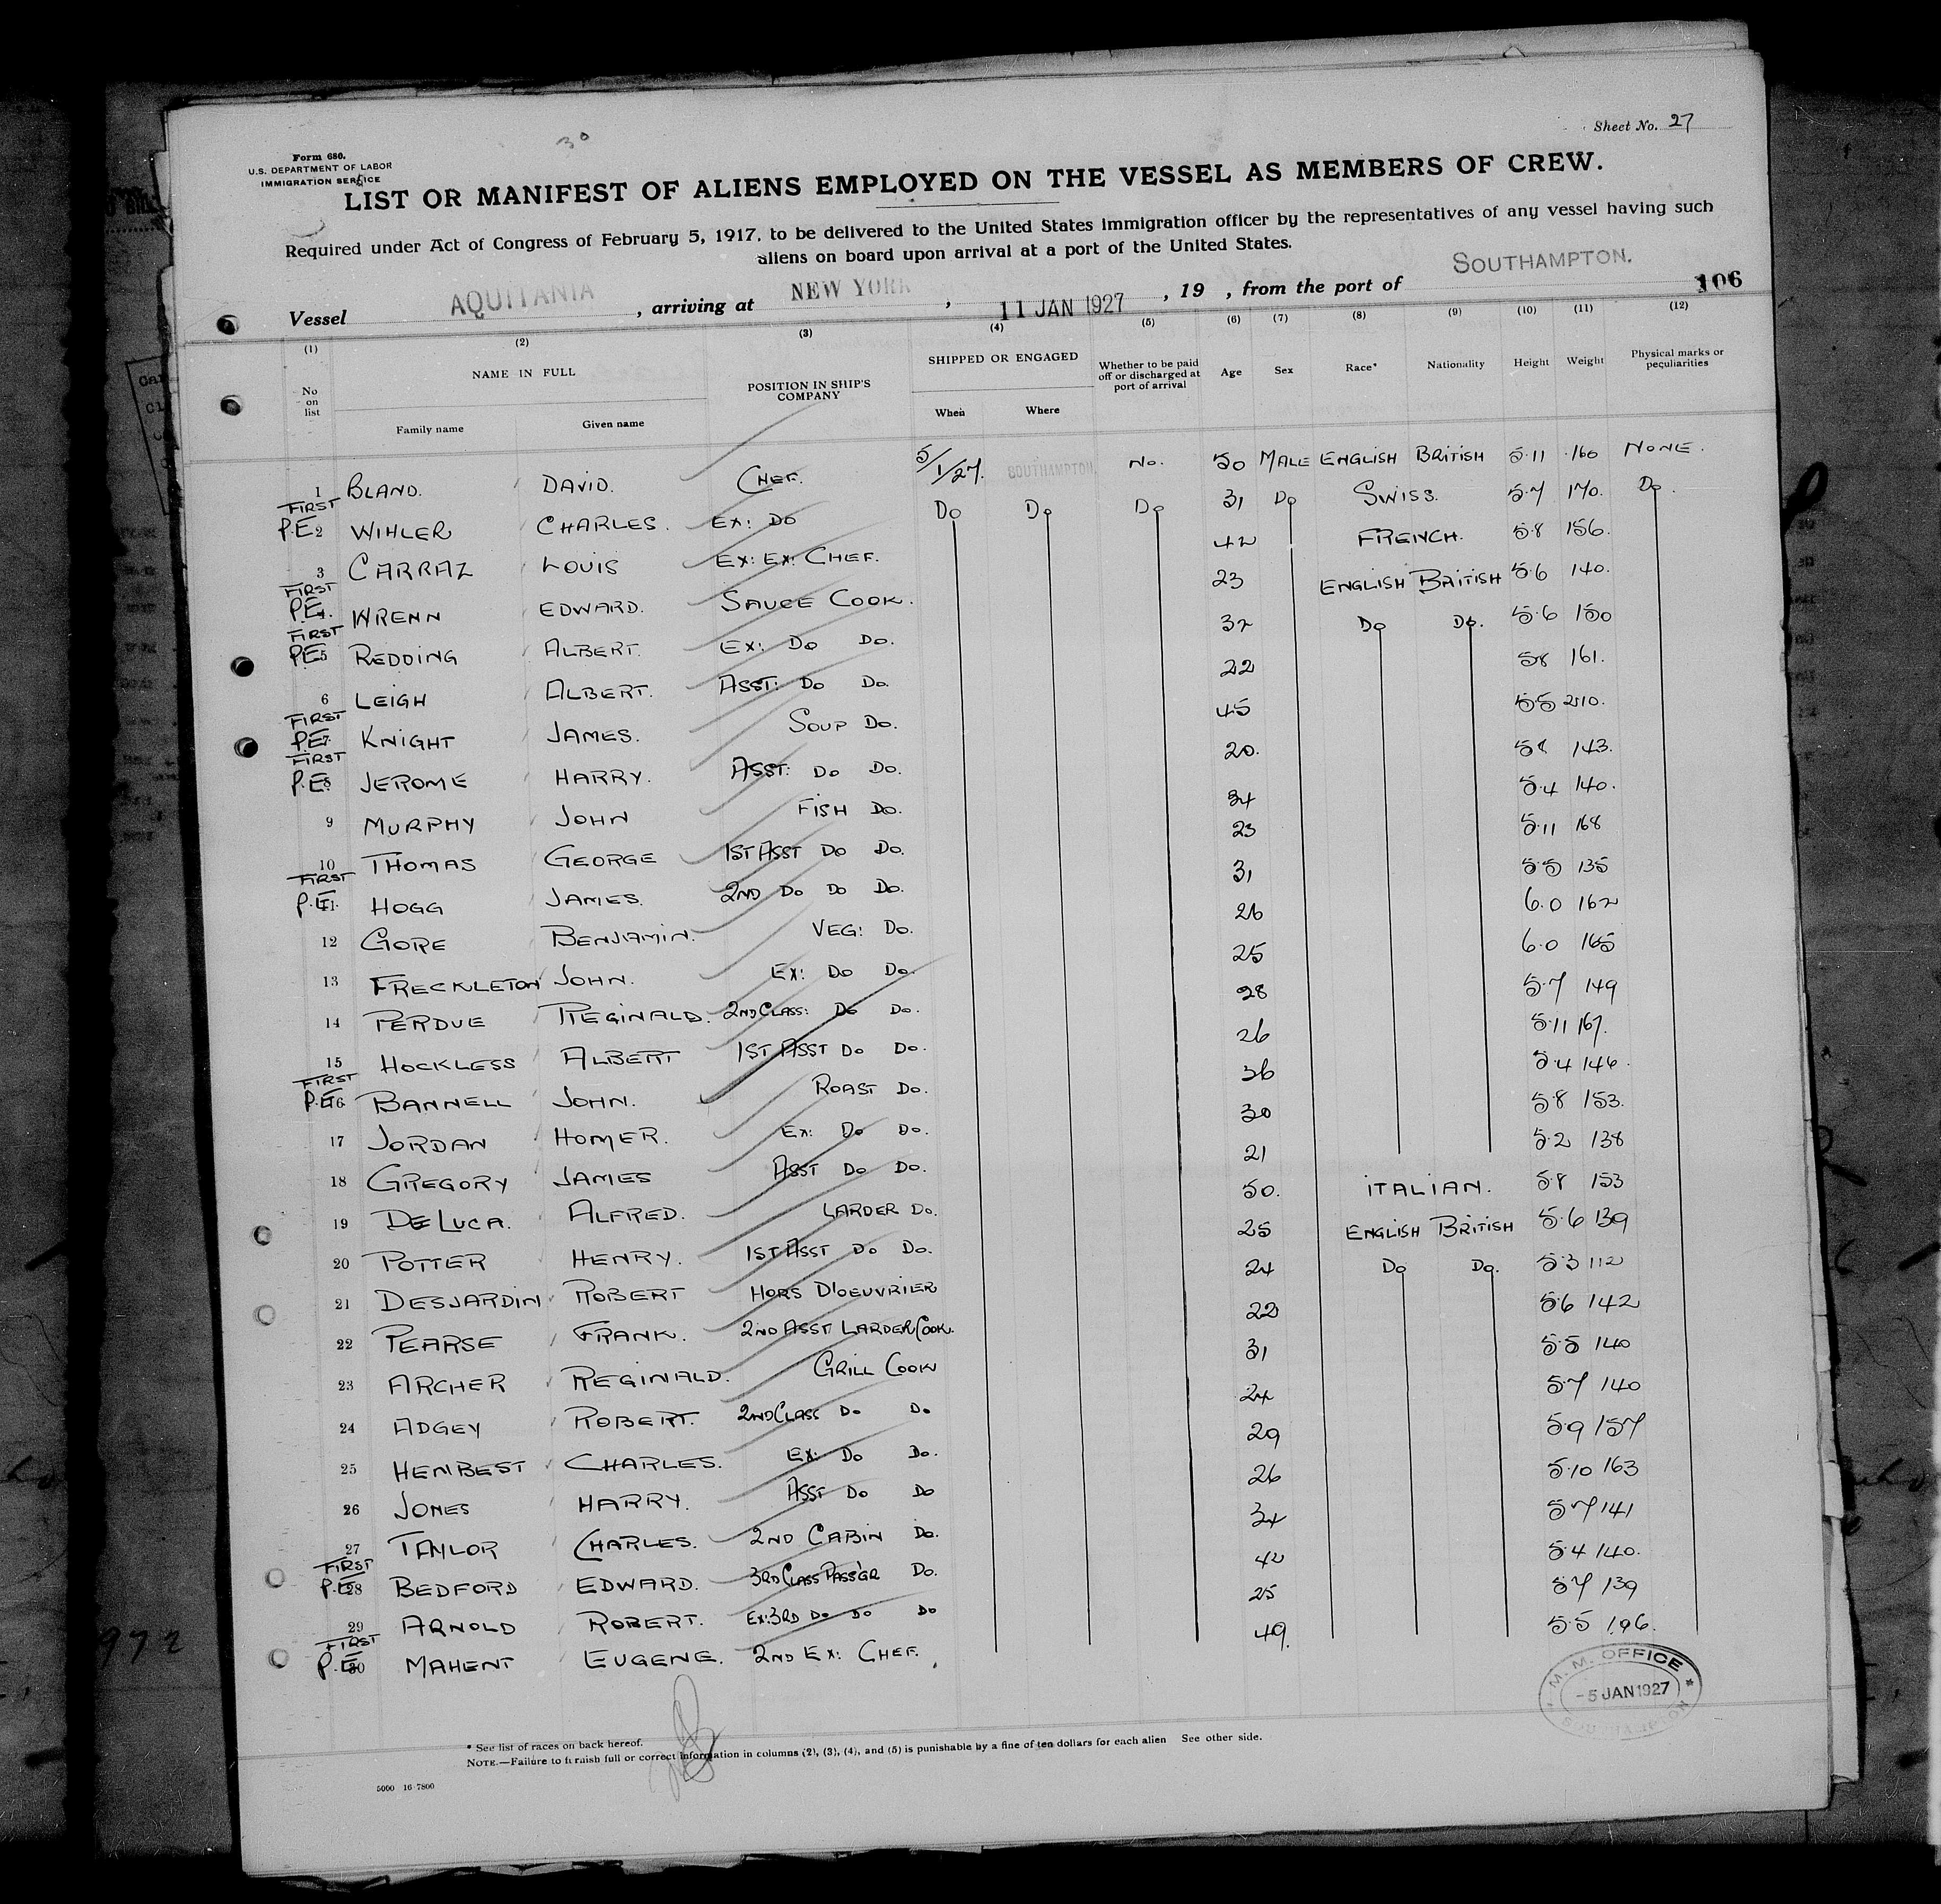 Sheet No. 27
30
Form 680.
U.S. DEPARTMENT OF LABOR
IMMIGRATION SERVICE
LIST OR MANIFEST OF ALIENS EMPLOYED ON THE VESSEL AS MEMBERS OF CREW.
Required under Act of Congress of February 5, 1917, to be delivered to the United States immigration officer by the representatives of any vessel having such
aliens on board upon arrival at a port of the United States.
Vessel AQUITANIA , arriving at NEW YORK , 11 JAN 1927 , 19 , from the port of SOUTHAMPTON.
106
(1) (2) (3) (4) (5) (6) (7) (8) (9) (10) (11) (12)
No on list NAME IN FULL POSITION IN SHIP'S COMPANY SHIPPED OR ENGAGED Whether to be paid off or discharged at port of arrival Age Sex Race* Nationality Height Weight Physical marks or peculiarities
Family name Given name When Where
1 BLAND. DAVID. CHEF. 5/1/27. SOUTHAMPTON. No. 50 MALE ENGLISH BRITISH 5.11 160 NONE.
FIRST P.E. 2 WIHLER CHARLES. EX: DO Do Do Do 31 Do SWISS. 5.7 170. Do.
3 CARRAZ LOUIS EX: EX: CHEF. 42 FRENCH. 5.8 156.
FIRST P.E. 4. WRENN EDWARD. SAUCE COOK. 23 ENGLISH BRITISH 5.6 140.
FIRST P.E. 5 REDDING ALBERT. EX: DO DO. 32 Do Do. 5.6 150
6 LEIGH ALBERT. ASST: DO DO. 22 5.8 161.
FIRST P.E. 7 KNIGHT JAMES. SOUP DO. 45 5.5 210.
FIRST P.E. 8 JEROME HARRY. ASST: DO DO. 20. 5.8 143.
9 MURPHY JOHN FISH DO. 34 5.4 140.
10 THOMAS GEORGE 1ST ASST DO DO. 23 5.11 168
FIRST P.E. 11. HOGG JAMES. 2ND DO DO DO. 31 5.5 135
12 GORE BENJAMIN. VEG: DO. 26 6.0 162
13 FRECKLETON JOHN. EX: DO DO. 25 6.0 165
14 PERDUE REGINALD. 2ND CLASS: DO DO. 28 5.7 149
15 HOCKLESS ALBERT 1ST ASST DO DO. 26 5.11 167.
FIRST P.E. 16 BANNELL JOHN. ROAST DO. 36 5.4 146.
17 JORDAN HOMER. EX: DO DO. 30 5.8 153.
18 GREGORY JAMES ASST DO DO. 21 5.2 138
19 DE LUCA. ALFRED. LARDER DO. 50. ITALIAN. 5.8 153
20 POTTER HENRY. 1ST ASST DO DO. 25 ENGLISH BRITISH 5.6 139
21 DESJARDIN ROBERT HORS D'OEUVRIER 24 Do Do. 5.3 112
22 PEARSE FRANK. 2ND ASST LARDER COOK. 22 5.6 142
23 ARCHER REGINALD. GRILL COOK 31 5.5 140
24 ADGEY ROBERT. 2ND CLASS DO DO 24 5.7 140
25 HEMBEST CHARLES. EX: DO DO. 29 5.9 157
26 JONES HARRY. ASST DO DO 26 5.10 163
27 TAYLOR CHARLES. 2ND CABIN DO. 34 5.7 141
FIRST P.E. 28 BEDFORD EDWARD. 3RD CLASS PASS'GR DO. 42 5.4 140.
29 ARNOLD ROBERT. EX: 3RD DO DO DO 25 5.7 139
FIRST P.E. 30 MAHENT EUGENE. 2ND EX: CHEF. 49. 5.5 196.
M. M. OFFICE
-5 JAN 1927
SOUTHAMPTON
* See list of races on back hereof.
NOTE.—Failure to furnish full or correct information in columns (2), (3), (4), and (5) is punishable by a fine of ten dollars for each alien See other side.
5000 16 7800
972